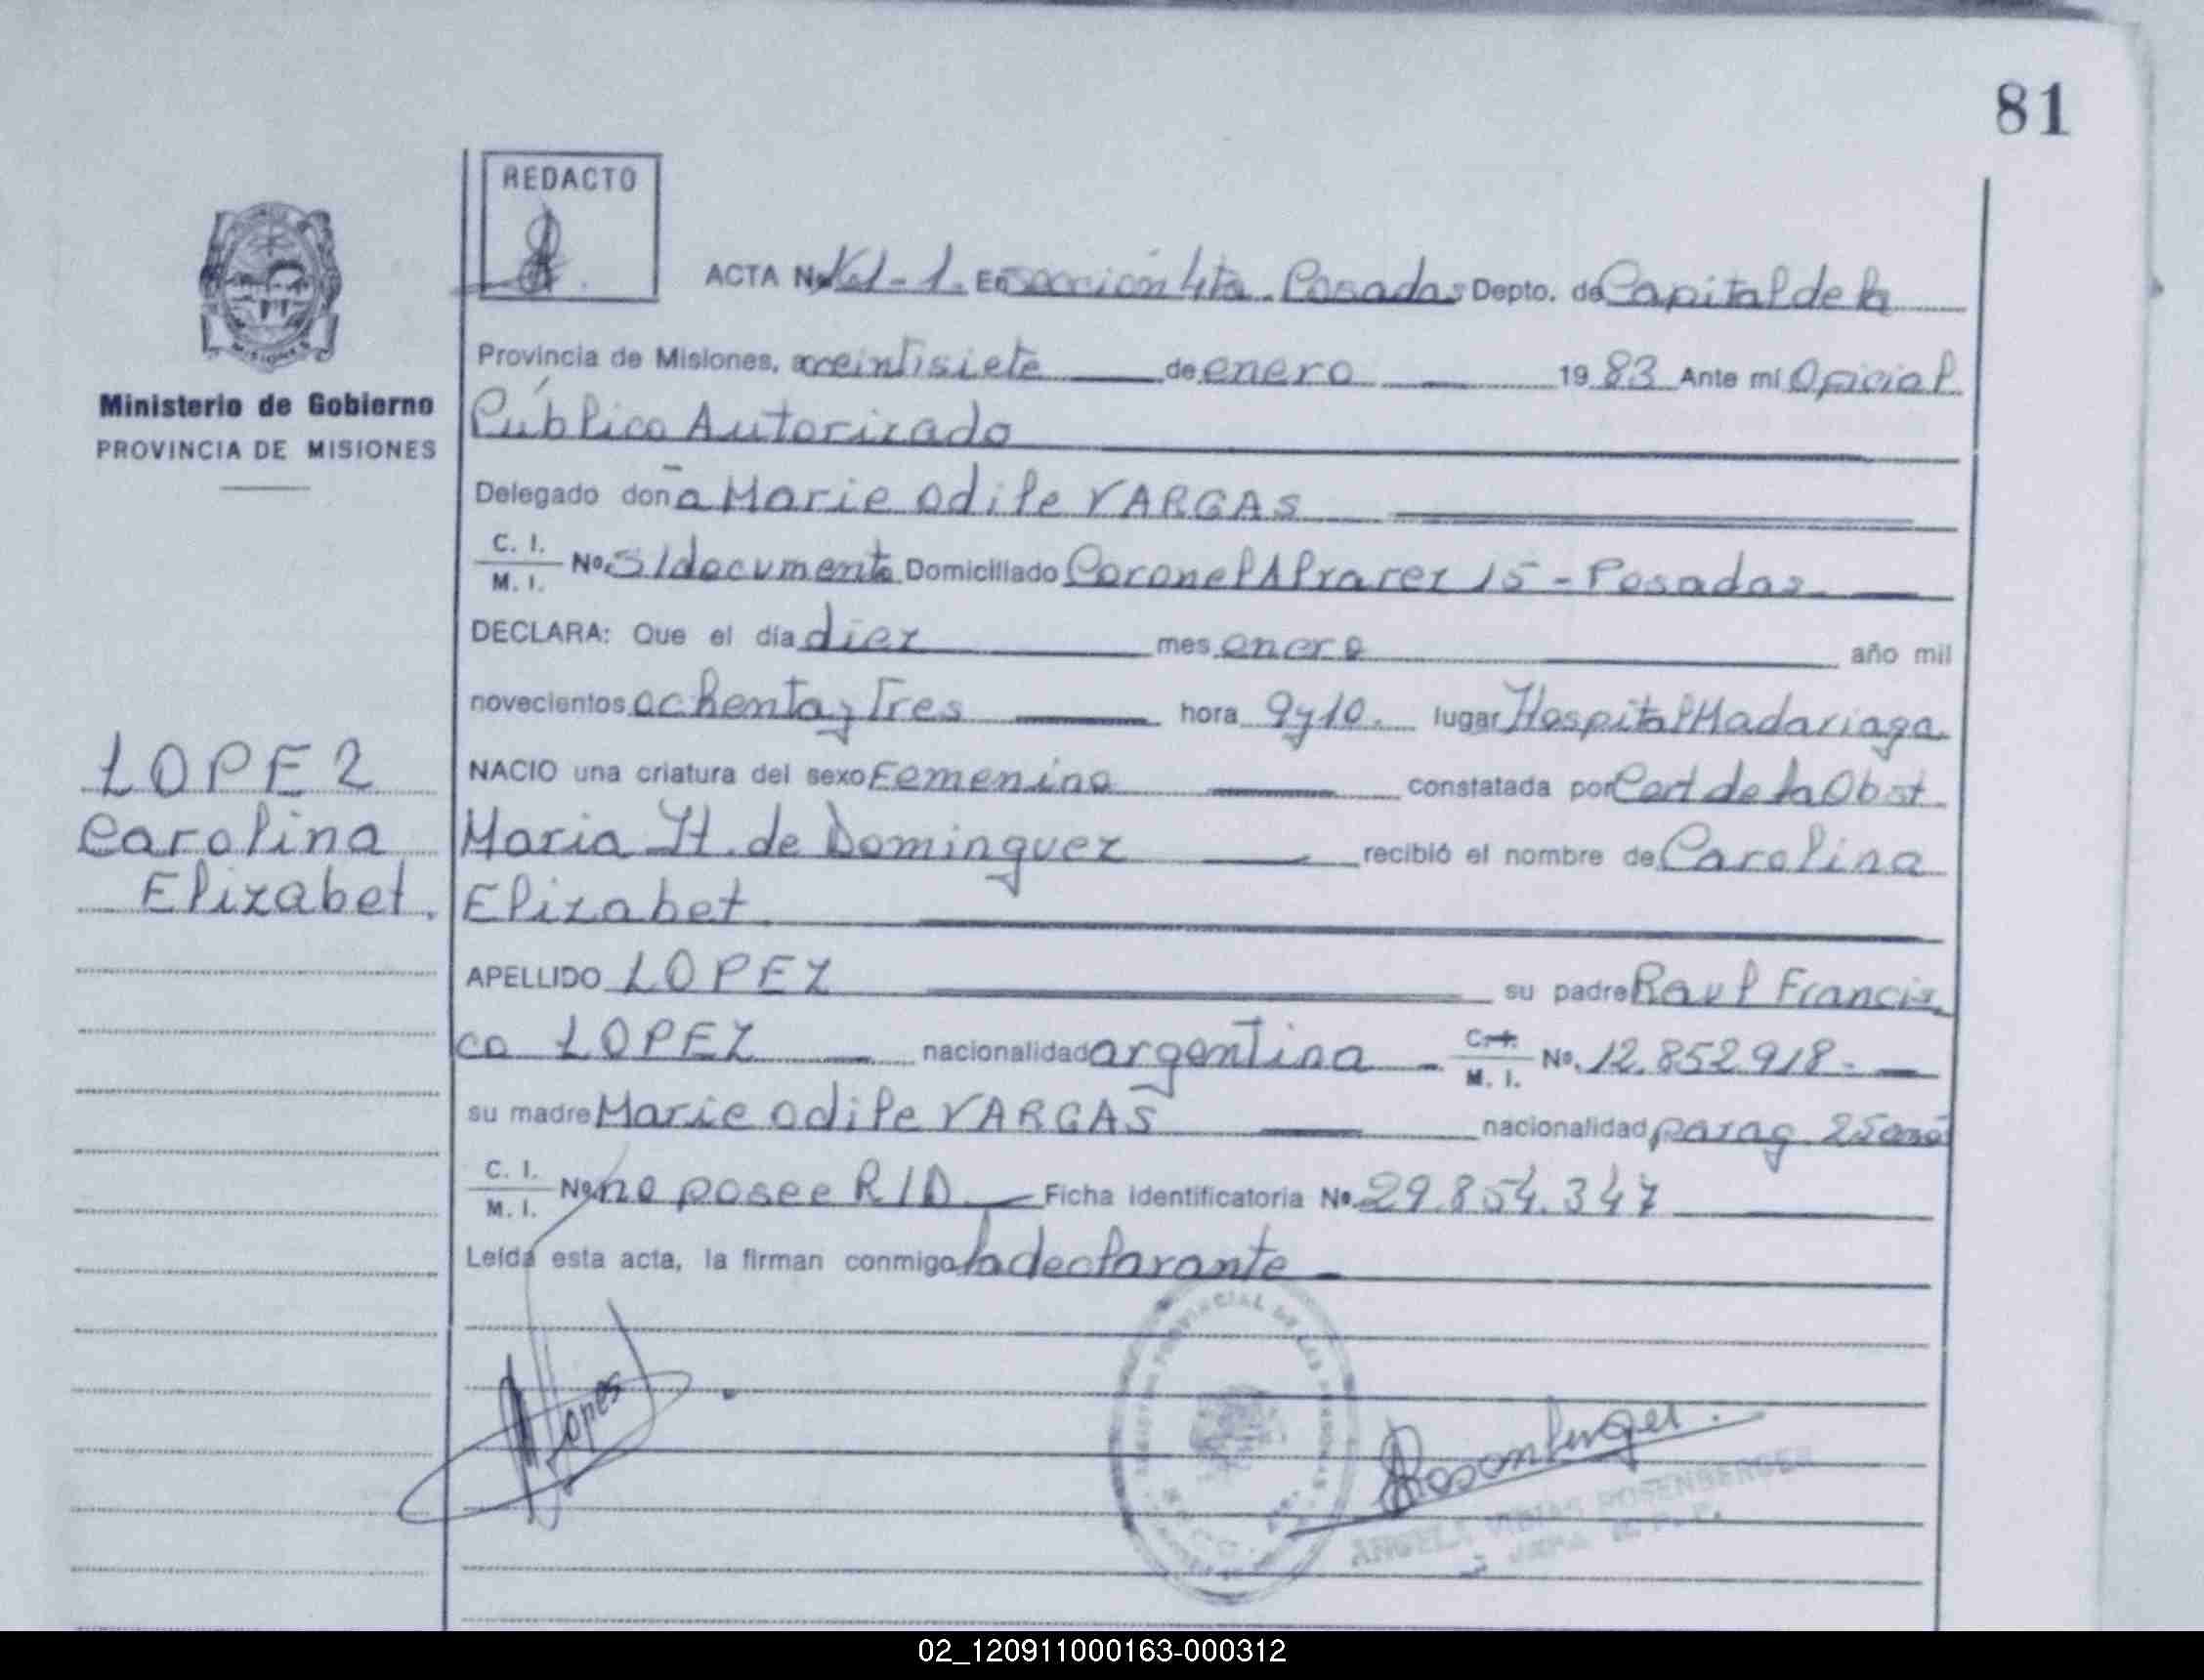 81
REDACTO
ACTA No 161-1. En sección 4ta. Posadas Depto. de Capital de la
Provincia de Misiones, a veintisiete de enero 19 83 Ante mí Oficial
Público Autorizado
Delegado doña Marie Odile VARGAS
C. I. / M. I. No. S/documento Domiciliado Coronel Alvarez 15 - Posadas
DECLARA: Que el día diez mes enero año mil
novecientos ochenta y Tres hora 9 y 10. lugar Hospital Madariaga
NACIO una criatura del sexo Femenino constatada por Cert de la Obst
Maria H. de Dominguez recibió el nombre de Carolina
Elizabet
APELLIDO LOPEZ su padre Raul Francis
co LOPEZ nacionalidad argentina - C. I. / M. I. No. 12.852.918.-
su madre Marie Odile VARGAS nacionalidad parag 25 años
C. I. / M. I. No. no posee R/D Ficha identificatoria No. 29.854.347
Leída esta acta, la firman conmigo la declarante
Lopes
Rosenberger.
ANGELA VIVIAN ROSENBERGER
MISIONES
Ministerio de Gobierno
PROVINCIA DE MISIONES
LOPEZ
Carolina
Elizabet.
02_120911000163-000312